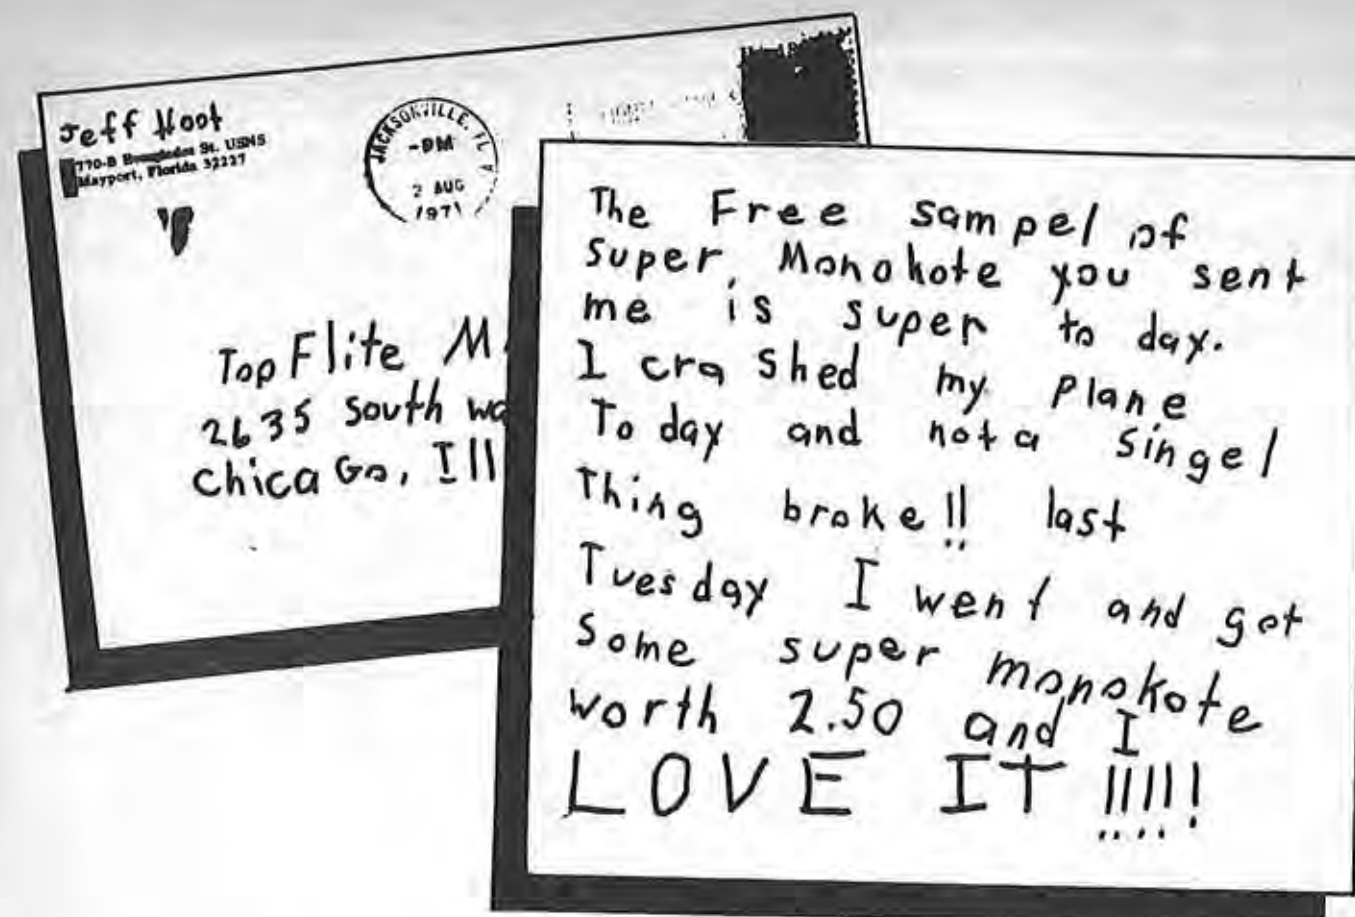 Jeff Hoot
770-B St. USNS
Mayport, Florida 32227
JACKSONVILLE, FL
-PM
2 AUG
1971
Top Flite M
2635 South wa
chicaGo, Ill
The Free sampel of
super Monokote you sent
me is super to day.
I cra shed my Plane
To day and not a singel
Thing broke!! last
Tuesday I went and got
Some super monokote
worth 2.50 and I
LOVE IT !!!!!